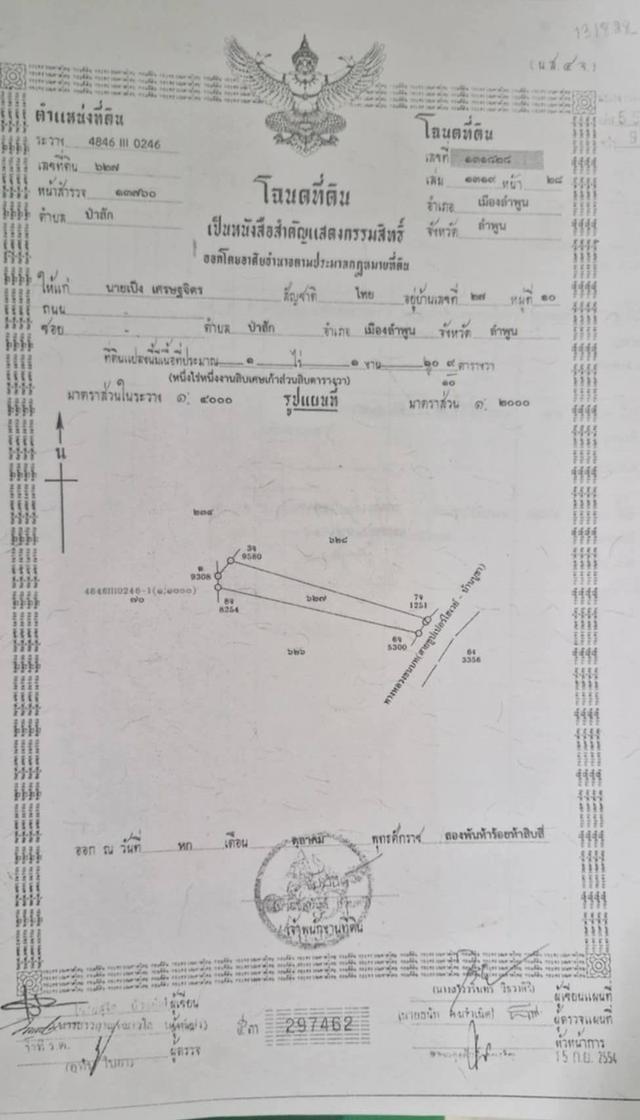 131828
(น.ส. ๔ จ.)
ตำแหน่งที่ดิน
ระวาง 4846 III 0246
เลขที่ดิน ๖๒๗
หน้าสำรวจ ๑๓๗๖๐
ตำบล ป่าสัก
โฉนดที่ดิน
เลขที่ ๑๓๑๘๒๘
เล่ม ๑๓๑๙ หน้า ๒๘
อำเภอ เมืองลำพูน
จังหวัด ลำพูน
โฉนดที่ดิน
เป็นหนังสือสำคัญแสดงกรรมสิทธิ์
ออกโดยอาศัยอำนาจตามประมวลกฎหมายที่ดิน
ให้แก่ นายเป็ง เศรษฐจิตร สัญชาติ ไทย อยู่บ้านเลขที่ ๒๗ หมู่ที่ ๑๐
ถนน -
ซอย - ตำบล ป่าสัก อำเภอ เมืองลำพูน จังหวัด ลำพูน
ที่ดินแปลงนี้มีเนื้อที่ประมาณ ๑ ไร่ ๑ งาน ๒๐ ๙/๑๐ ตารางวา
(หนึ่งไร่หนึ่งงานสิบเศษเก้าส่วนสิบตารางวา)
มาตราส่วนในระวาง ๑: ๔๐๐๐ รูปแผนที่ มาตราส่วน ๑: ๒๐๐๐
น
๒๓๔
๖๒๘
3จ
9580
๑
9308
4846III0246-1(๑:๑๐๐๐)
๗๐
8จ
8254
๖๒๗
7จ
1251
6จ
5300
๖๒๖
6ง
3356
ออก ณ วันที่ หก เดือน ตุลาคม พุทธศักราช สองพันห้าร้อยห้าสิบสี่
เจ้าพนักงานที่ดิน
ผู้เขียน
ผู้ตรวจ
297462
ผู้เขียนแผนที่
ผู้ตรวจแผนที่
หัวหน้าการ
15 ก.ย. 2554